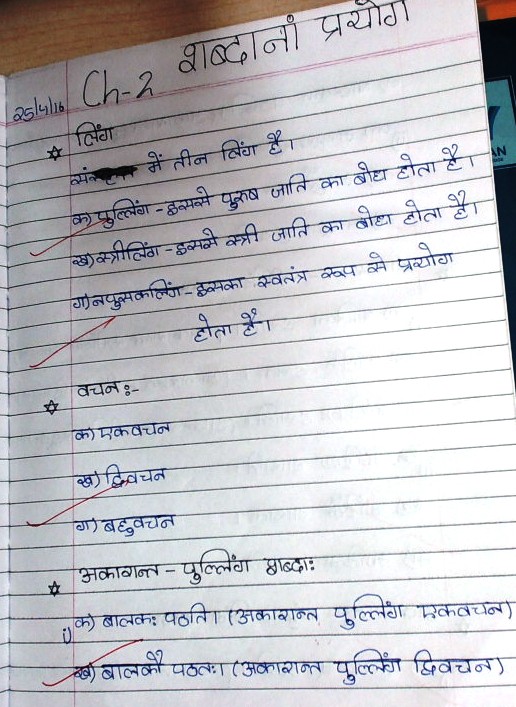 25/4/16 Ch-2 शब्दानां प्रयोग
☆ लिंग
में तीन लिंग है।
क) पुल्लिंग - इससे पुरुष जाति का बोध होता है।
ख) स्त्रीलिंग - इससे स्त्री जाति का बोध होता है।
ग) नपुसकलिंग - इसका स्वतंत्र रूप से प्रयोग
होता है।
☆ वचन :-
क) एकवचन
ख) द्विवचन
ग) बहुवचन
☆ अकारान्त - पुल्लिंग शब्दाः
i) क) बालकः पठति। (अकारान्त पुल्लिंग एकवचन)
ख) बालकौ पठतः। (अकारान्त पुल्लिंग द्विवचन)